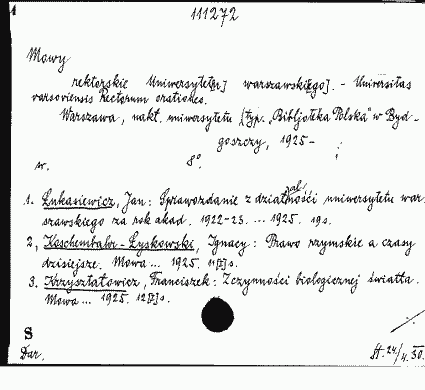 4
111272
Mowy
rektorskie Uniwersytetu[!] warszawskie[go]. - Universitas
varsoviensis Rectorum orationes.
Warszawa, nakł. uniwersytetu [typ. „Bibljoteka Polska" w Byd-
goszczy, 1925 -
w. 8°.
1. Łukasiewicz, Jan: Sprawozdanie z działalności uniwersytetu war-
szawskiego za rok akad. 1922-23. ... 1925. 19 s.
2, Koschembahr-Łyskowski, Ignacy: Prawo rzymskie a czasy
dzisiejsze. Mowa ... 1925. s.
3. Krzyształowicz, Franciszek: Z czynności biologicznej światła.
Mowa ... 1925. s.
S
Dar. 24/4. 30.